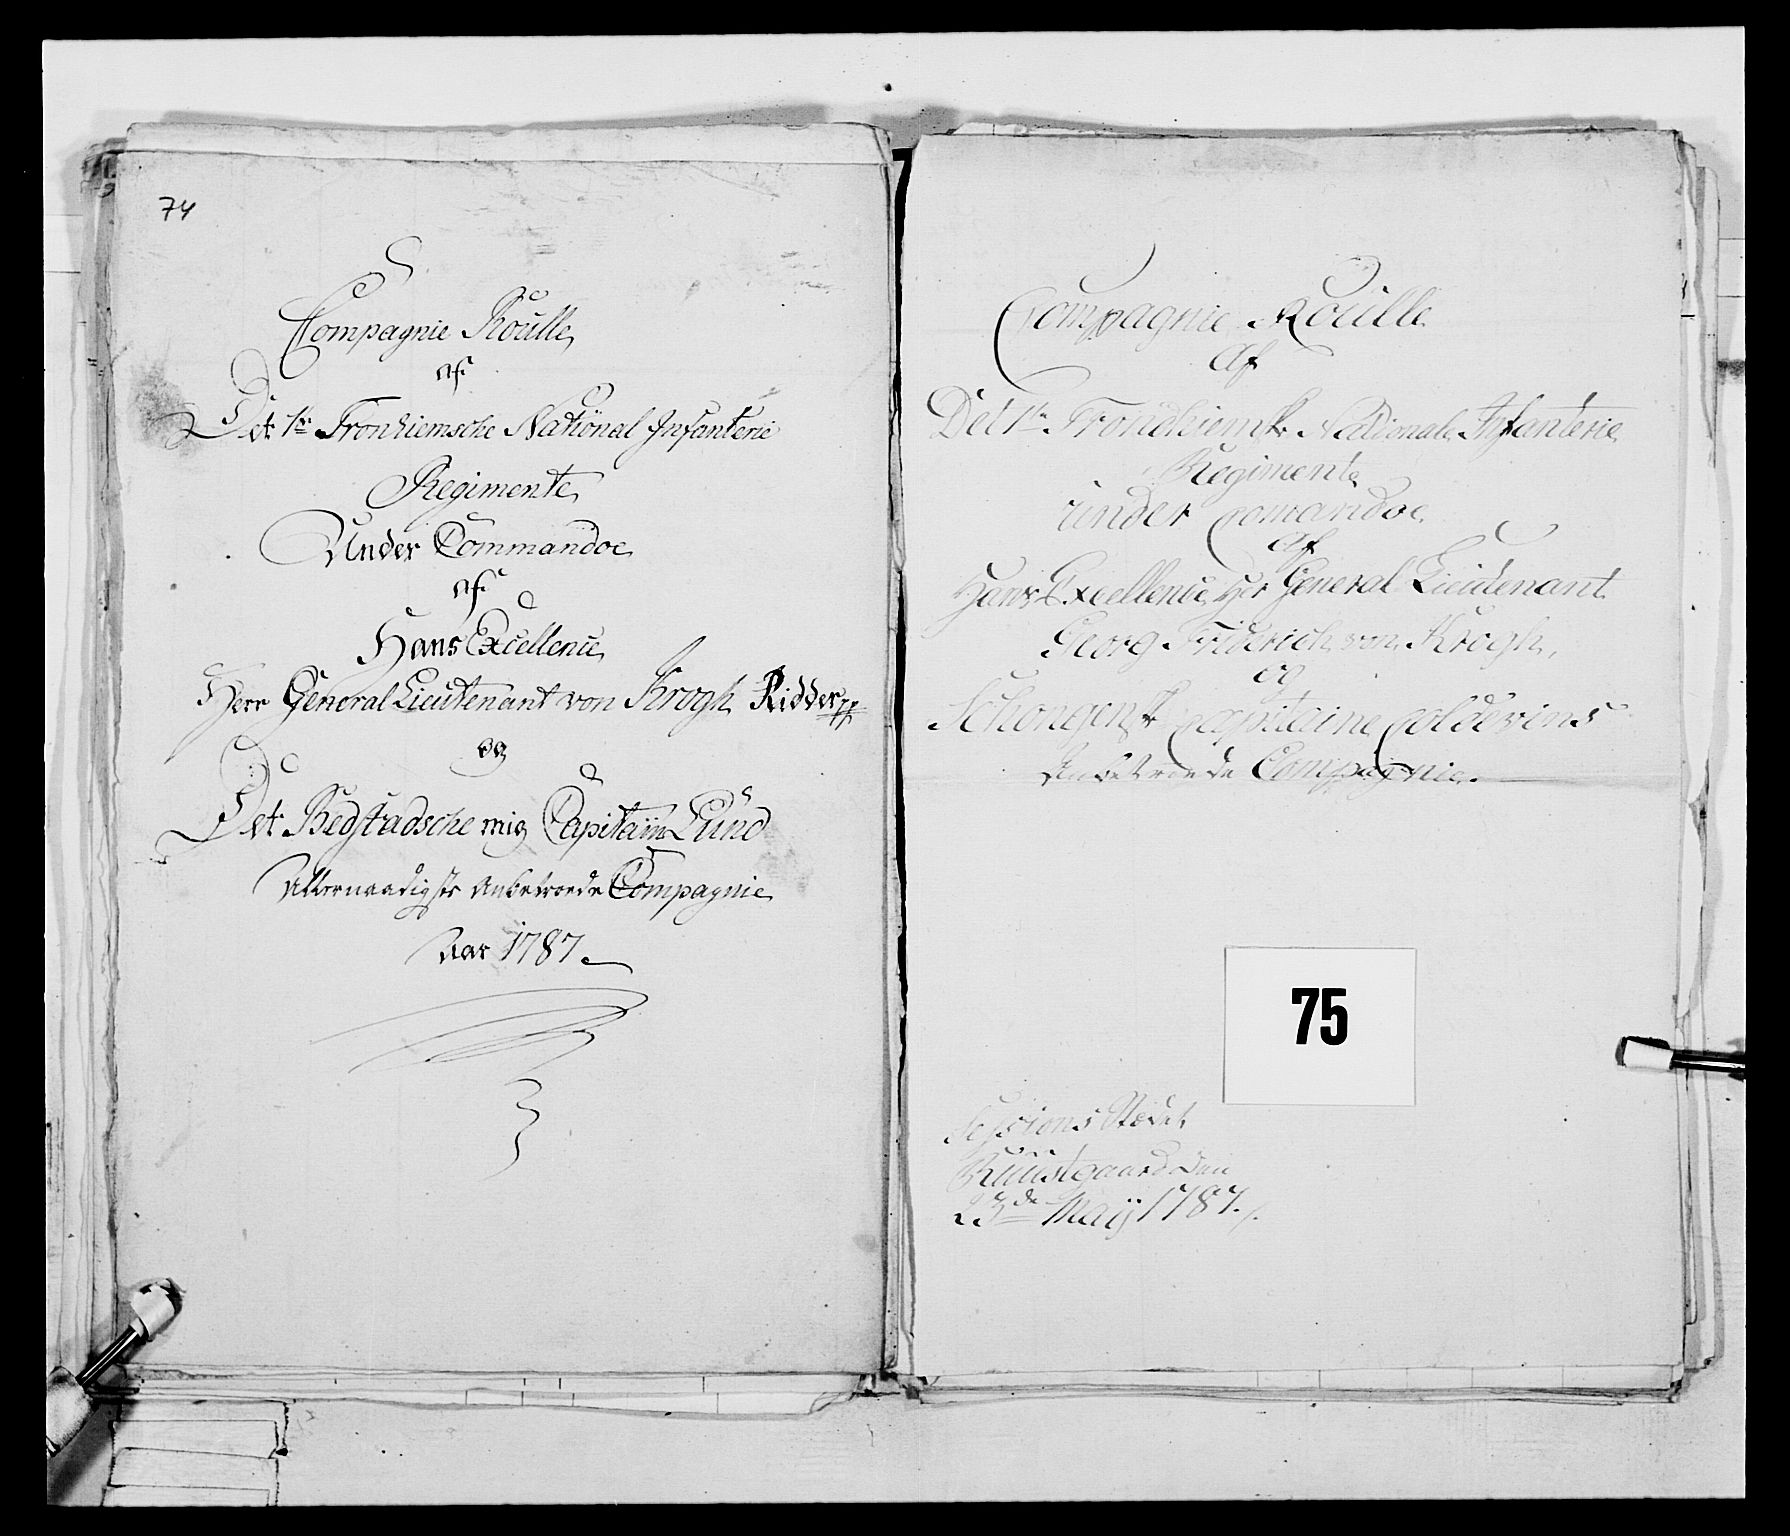 74
Compagnie Roulle
af
Det 1te Tronhiemsche National Infanterie
Regimente
Under Commandoe
af
Hans Excellence
Herr General Lieutenant von Krogh Ridder pp
og
Det Bedstadsche mig Capitain Lund
Allernaadigste Anbetroede Compagnie
Aar 1787.
Compagnie Roulle
Af
Det 1te Trondhiemske Nationale Infanterie
Regimente
under Comandoe
Af
Hans Excellence Her General Lieutenant
Georg Friderich von Krogh,
og
Schongenske Capitaine Coldevins
Anbetroede Compagnie.
75
Sessions Stædet
Ruustgaard den
23de Maÿ 1787./.